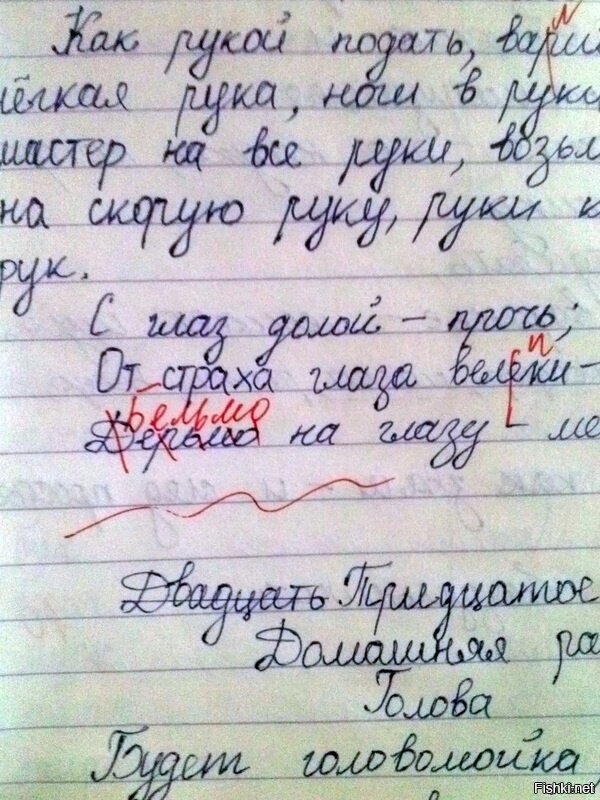 Как рукой подать, вари
лёгкая рука, ноги в руки
мастер на все руки, возьм
на скорую руку, руки к
рук.
С глаз долой – прочь;
От страха глаза велеки –
Бельмо
Дерьмо на глазу – ме
Двадцать Тридцатое
Домашняя ра
Голова
Будет головомойка,
Fishki.net